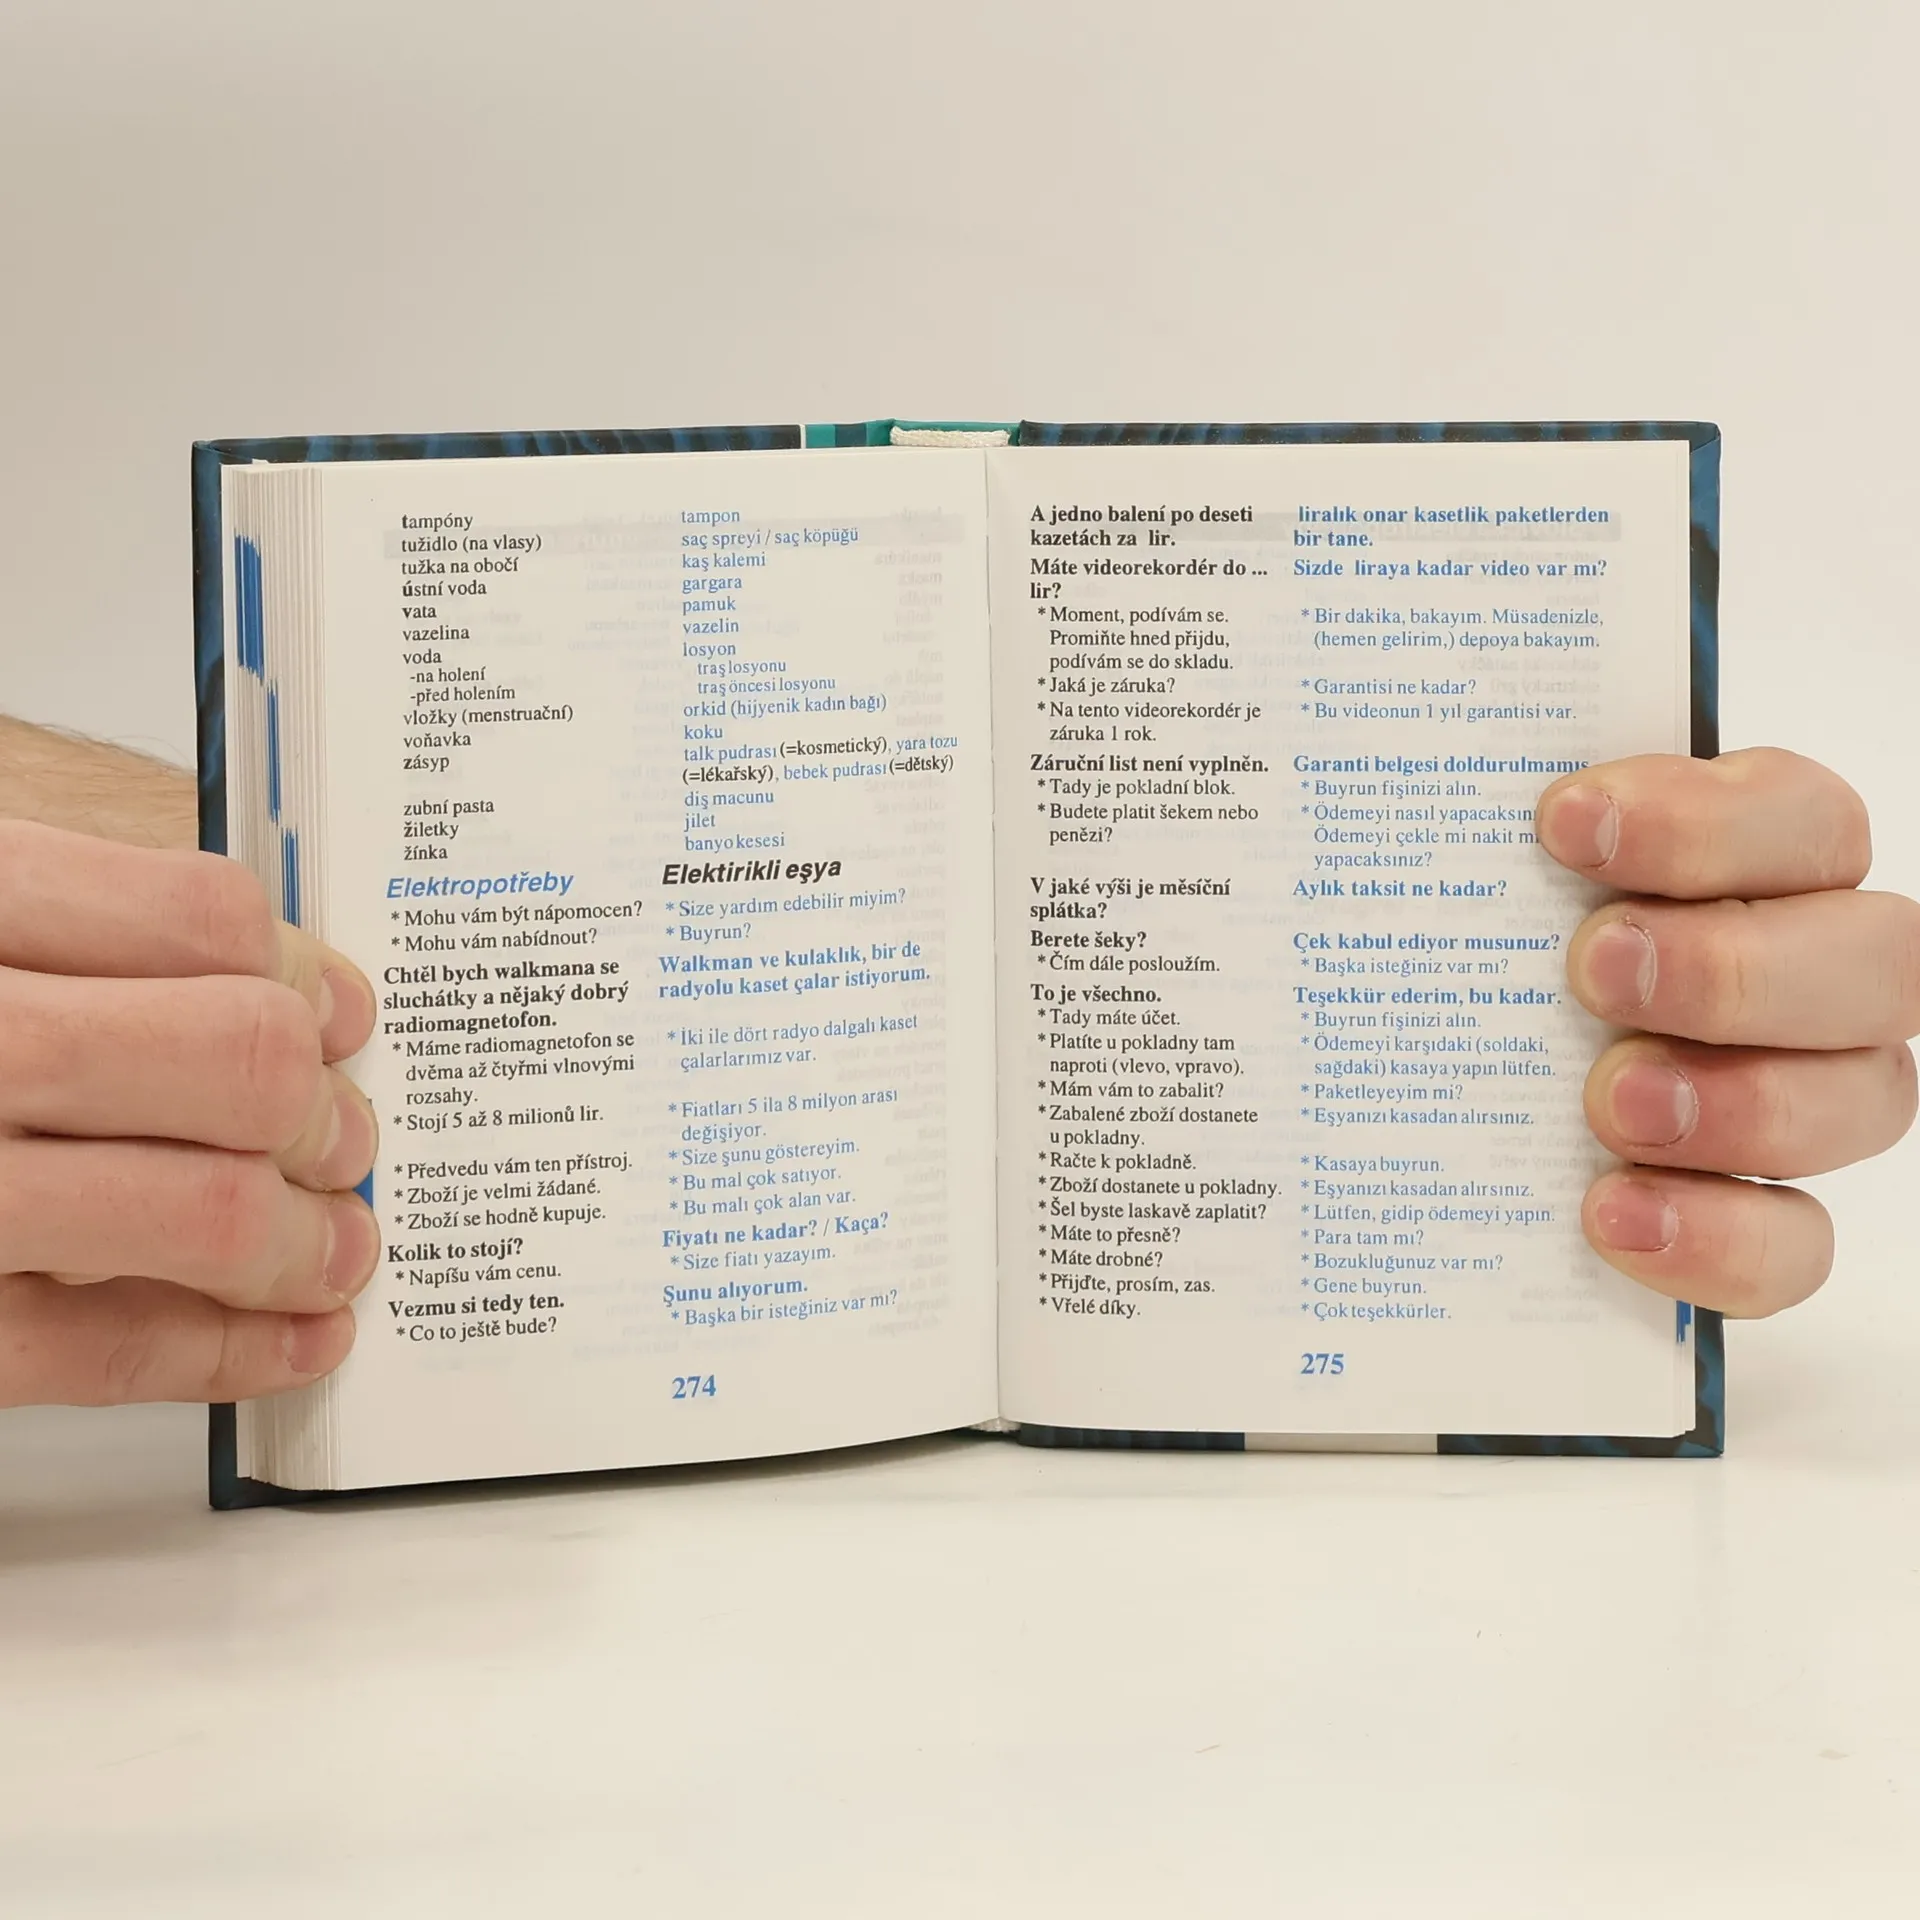 tampóny tampon
tužidlo (na vlasy) saç spreyi / saç köpüğü
tužka na obočí kaş kalemi
ústní voda gargara
vata pamuk
vazelina vazelin
voda losyon
-na holení traş losyonu
-před holením traş öncesi losyonu
vložky (menstruační) orkid (hijyenik kadın bağı)
voňavka koku
zásyp talk pudrası (=kosmetický), yara tozu
(=lékařský), bebek pudrası (=dětský)
zubní pasta diş macunu
žiletky jilet
žínka banyo kesesi
Elektropotřeby Elektirikli eşya
* Mohu vám být nápomocen? * Size yardım edebilir miyim?
* Mohu vám nabídnout? * Buyrun?
Chtěl bych walkmana se Walkman ve kulaklık, bir de
sluchátky a nějaký dobrý radyolu kaset çalar istiyorum.
radiomagnetofon.
* Máme radiomagnetofon se * İki ile dört radyo dalgalı kaset
dvěma až čtyřmi vlnovými çalarlarımız var.
rozsahy.
* Stojí 5 až 8 milionů lir. * Fiatları 5 ila 8 milyon arası
değişiyor.
* Předvedu vám ten přístroj. * Size şunu göstereyim.
* Zboží je velmi žádané. * Bu mal çok satıyor.
* Zboží se hodně kupuje. * Bu malı çok alan var.
Kolik to stojí? Fiyatı ne kadar? / Kaça?
* Napíšu vám cenu. * Size fiatı yazayım.
Vezmu si tedy ten. Şunu alıyorum.
* Co to ještě bude? * Başka bir isteğiniz var mı?
274
A jedno balení po deseti liralık onar kasetlik paketlerden
kazetách za lir. bir tane.
Máte videorekordér do ... Sizde liraya kadar video var mı?
lir?
* Moment, podívám se. * Bir dakika, bakayım. Müsadenizle,
Promiňte hned přijdu, (hemen gelirim,) depoya bakayım.
podívám se do skladu.
* Jaká je záruka? * Garantisi ne kadar?
* Na tento videorekordér je * Bu videonun 1 yıl garantisi var.
záruka 1 rok.
Záruční list není vyplněn. Garanti belgesi doldurulmamış
* Tady je pokladní blok. * Buyrun fişinizi alın.
* Budete platit šekem nebo * Ödemeyi nasıl
penězi? Ödemeyi çekle mi nakit
yapacaksınız?
V jaké výši je měsíční Aylık taksit ne kadar?
splátka?
Berete šeky? Çek kabul ediyor musunuz?
* Čím dále posloužím. * Başka isteğiniz var mı?
To je všechno. Teşekkür ederim, bu kadar.
* Tady máte účet. * Buyrun fişinizi alın.
* Platíte u pokladny tam * Ödemeyi karşıdaki (soldaki,
naproti (vlevo, vpravo). sağdaki) kasaya yapın lütfen.
* Mám vám to zabalit? * Paketleyeyim mi?
* Zabalené zboží dostanete * Eşyanızı kasadan alırsınız.
u pokladny.
* Račte k pokladně. * Kasaya buyrun.
* Zboží dostanete u pokladny. * Eşyanızı kasadan alırsınız.
* Šel byste laskavě zaplatit? * Lütfen, gidip ödemeyi yapın.
* Máte to přesně? * Para tam mı?
* Máte drobné? * Bozukluğunuz var mı?
* Přijďte, prosím, zas. * Gene buyrun.
* Vřelé díky. * Çok teşekkürler.
275